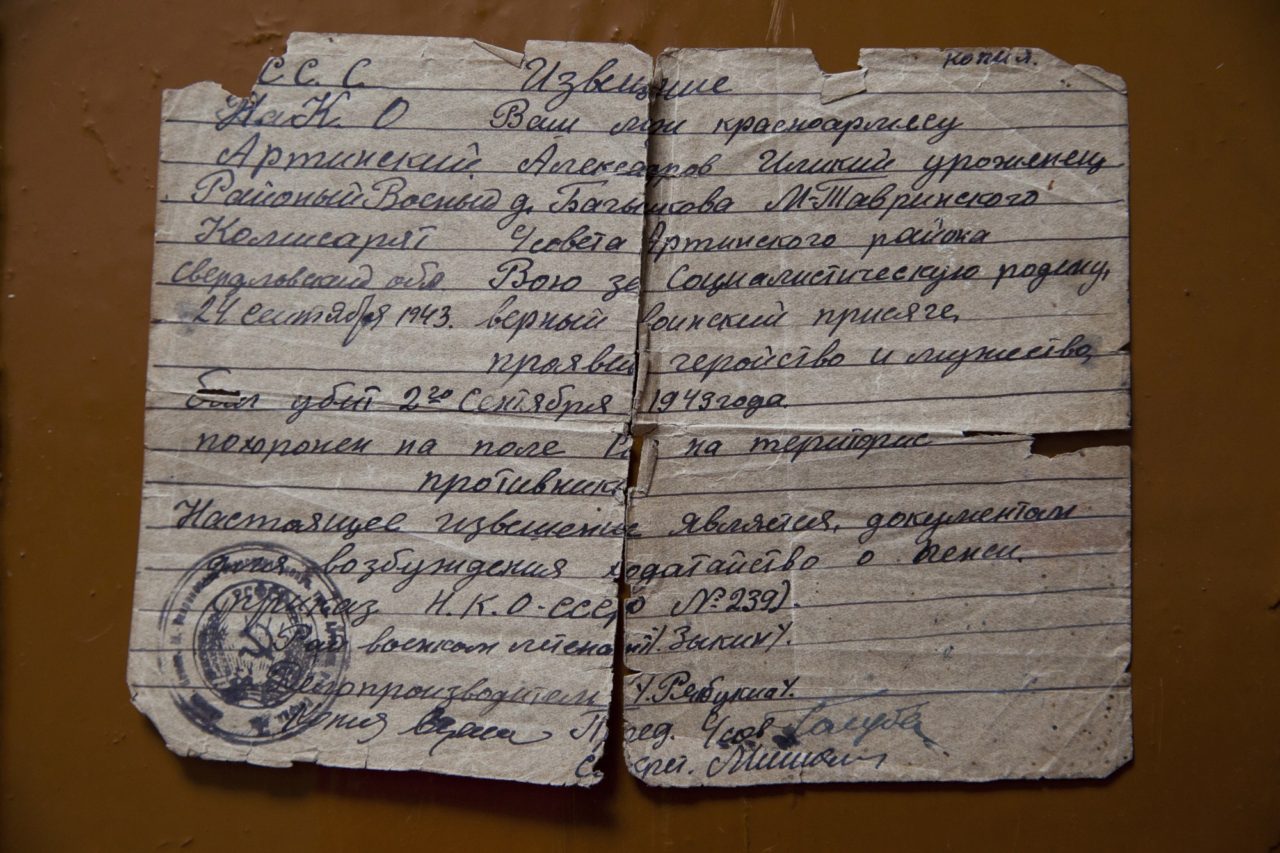 копия.
С С. С. Извещение
На К. О Ваш муж красноармеец
Артинский. Александров Иликий уроженец
Районый Военый д. Багышкова М-Тавринского
Комисарят ч/совета Артинского района
Свердловский обл Вою за социалистическую родину,
24 сентября 1943. верный воинский присяге,
проявив геройство и мужество,
был убит 2го Сентября 1943 года.
похоронен на поле на територие
противника
Настоящее извешение является, документам
для возбуждения ходатайство о пенси.
(приказ Н.К.О-СССР №239).
Рай военком летенант /Зыкин/.
Делопроизводителем /Рябухина/.
Копия верна Пред. Ч/сов Голуба
Секрет.
РСФСР